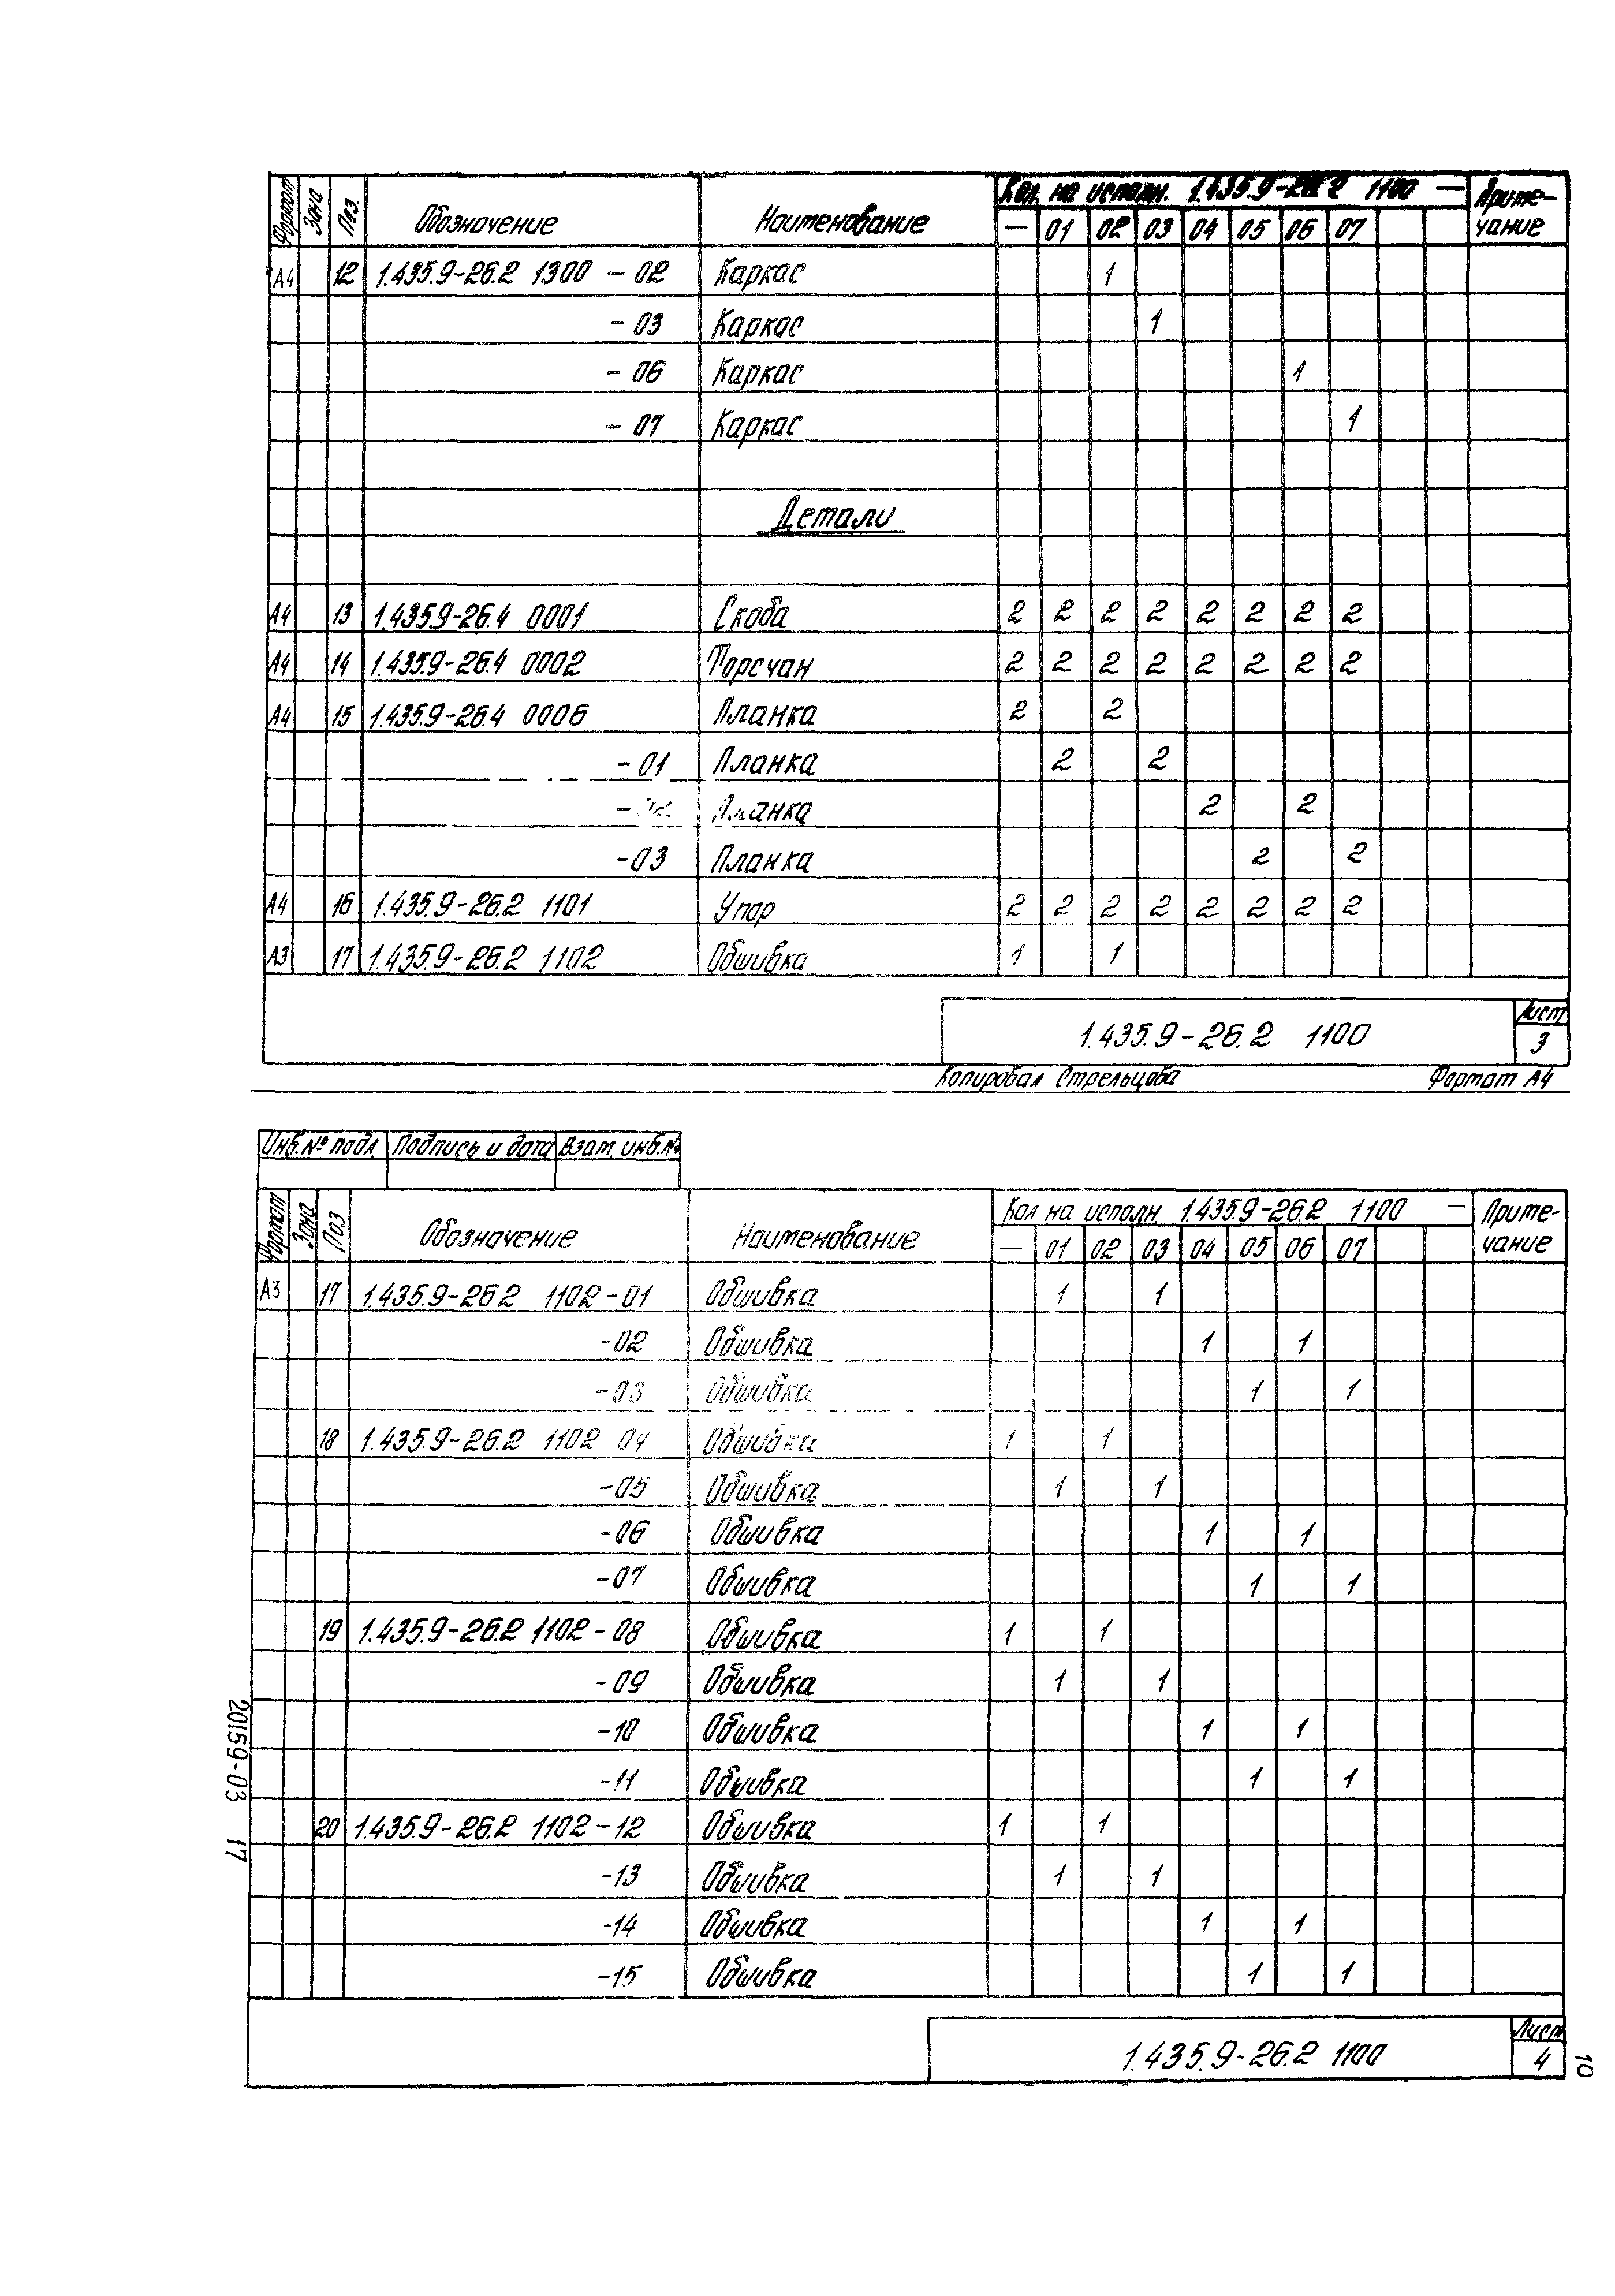 Формат Зона Поз. Обозначение Наименование Кол. на исполн. 1.435.9-26.2 1100 — Приме-
— 01 02 03 04 05 06 07 чание
А4 12 1.435.9-26.2 1300 - 02 Каркас 1
- 03 Каркас 1
- 06 Каркас 1
- 07 Каркас 1
Детали
А4 13 1.435.9-26.4 0001 Скоба 2 2 2 2 2 2 2 2
А4 14 1.435.9-26.4 0002 2 2 2 2 2 2 2 2
А4 15 1.435.9-26.4 0006 Планка 2 2
-01 Планка 2 2
- Планка 2 2
-03 Планка 2 2
А4 16 1.435.9-26.2 1101 Упор 2 2 2 2 2 2 2 2
А3 17 1.435.9-26.2 1102 Обшивка 1 1
1.435.9-26.2 1100 Лист
3
Копировал Стрельцова Формат А4
Инв.№ подл. Подпись и дата Взам. инв.№
Формат Зона Поз Обозначение Наименование Кол на исполн. 1.435.9-26.2 1100 — Приме-
— 01 02 03 04 05 06 07 чание
А3 17 1.435.9-26.2 1102-01 Обшивка 1 1
-02 Обшивка 1 1
-03 Обшивка 1 1
18 1.435.9-26.2 1102 04 Обшивка 1 1
-05 Обшивка 1 1
-06 Обшивка 1 1
-07 Обшивка 1 1
19 1.435.9-26.2 1102-08 Обшивка 1 1
-09 Обшивка 1 1
-10 Обшивка 1 1
-11 Обшивка 1 1
20 1.435.9-26.2 1102-12 Обшивка 1 1
-13 Обшивка 1 1
-14 Обшивка 1 1
-15 Обшивка 1 1
1.435.9-26.2 1100 Лист
4
20159-03 17
10